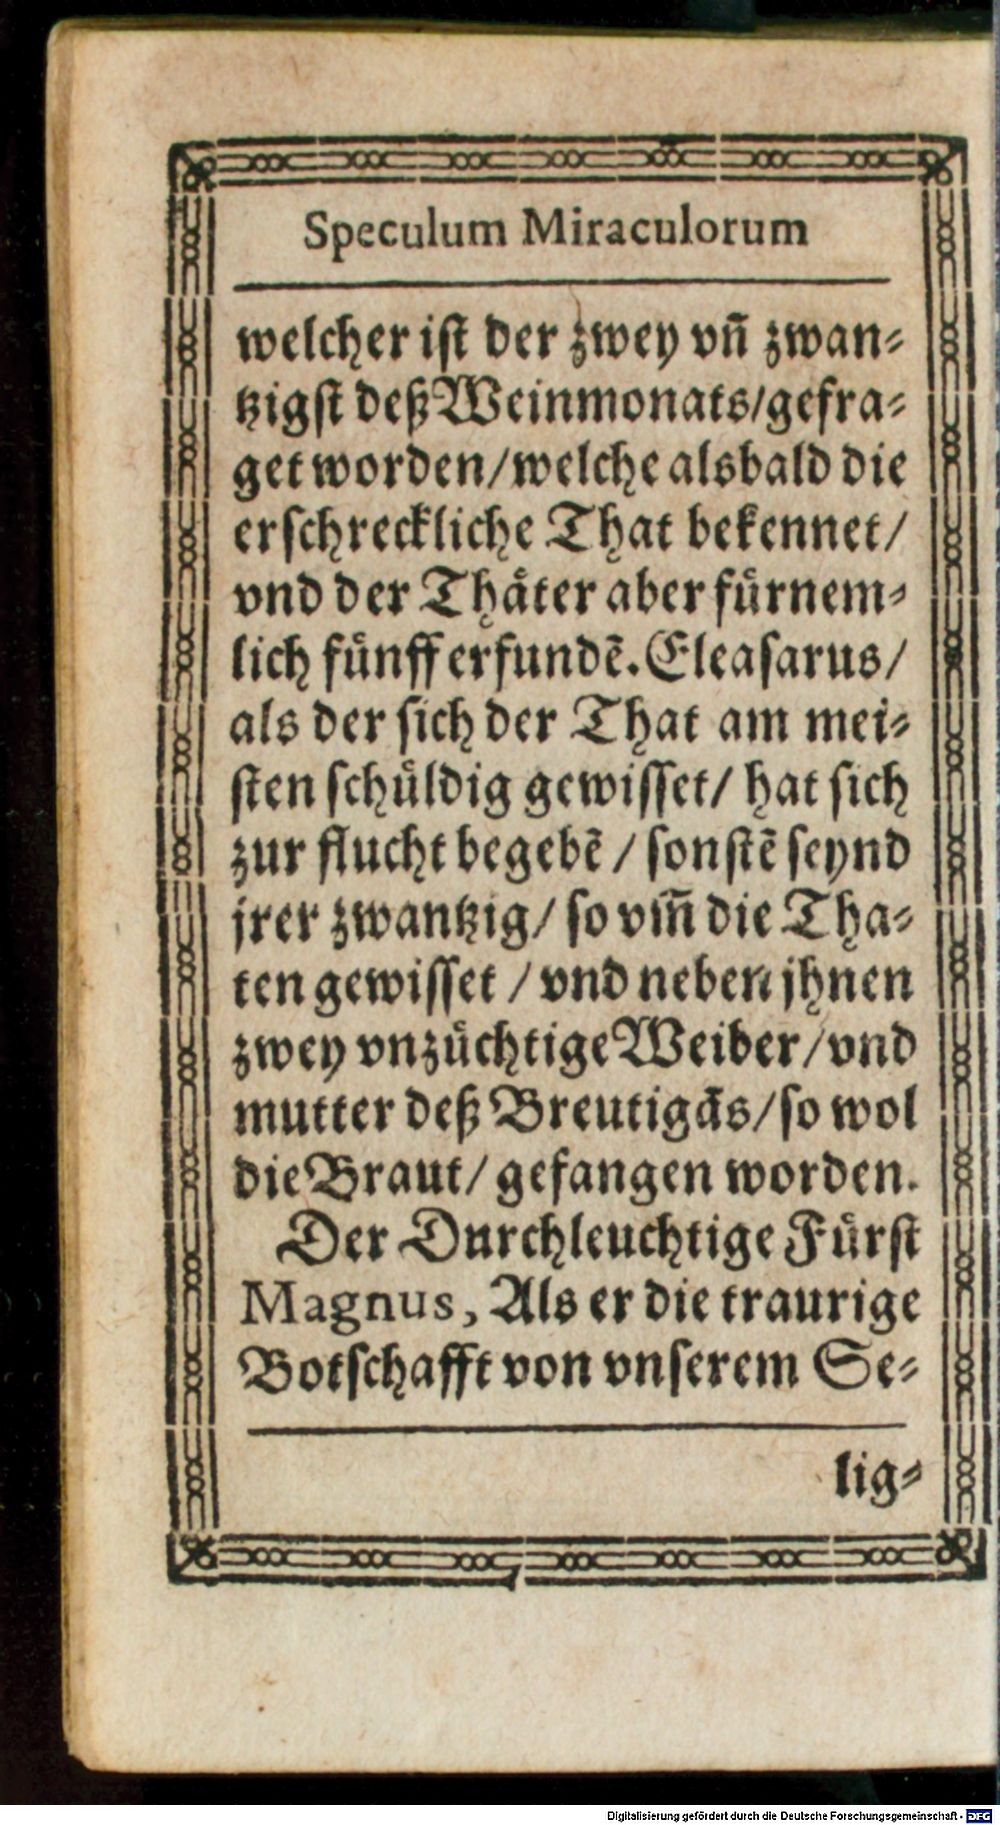 Speculum Miraculorum
welcher iſt der zwey vñ zwan⸗
tzigſt deß Weinmonats/gefra⸗
get worden/welche alsbald die
erſchreckliche That bekennet/
vnd der Thaͤter aber fuͤrnem⸗
lich fuͤnff erfundẽ. Eleaſarus/
als der ſich der That am mei⸗
ſten ſchuͤldig gewiſſet/ hat ſich
zur flucht begebẽ / ſonſtẽ ſeynd
jrer zwantzig/ ſo vm̃ die Tha⸗
ten gewiſſet / vnd neben jhnen
zwey vnzuͤchtige Weiber/vnd
mutter deß Breutigãs/ſo wol
die Braut/ gefangen worden.
Der Durchleuchtige Fuͤrſt
Magnus, Als er die traurige
Botſchafft von vnſerem Se⸗
lig⸗
Digitalisierung gefördert durch die Deutsche Forschungsgemeinschaft - DFG